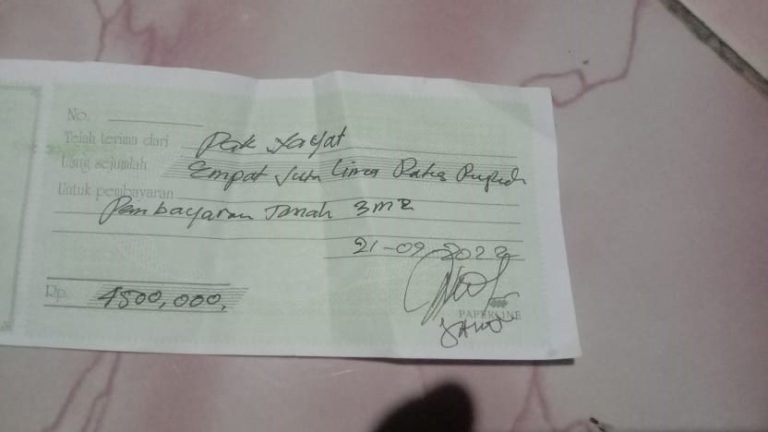 No.
Telah terima dari Pak Yayat
Uang sejumlah Empat Juta Lima Ratus Rupiah
Untuk pembayaran
Pembayaran Tanah 3m2
21-09-2022
Rp. 4500,000,
PAPERLINE